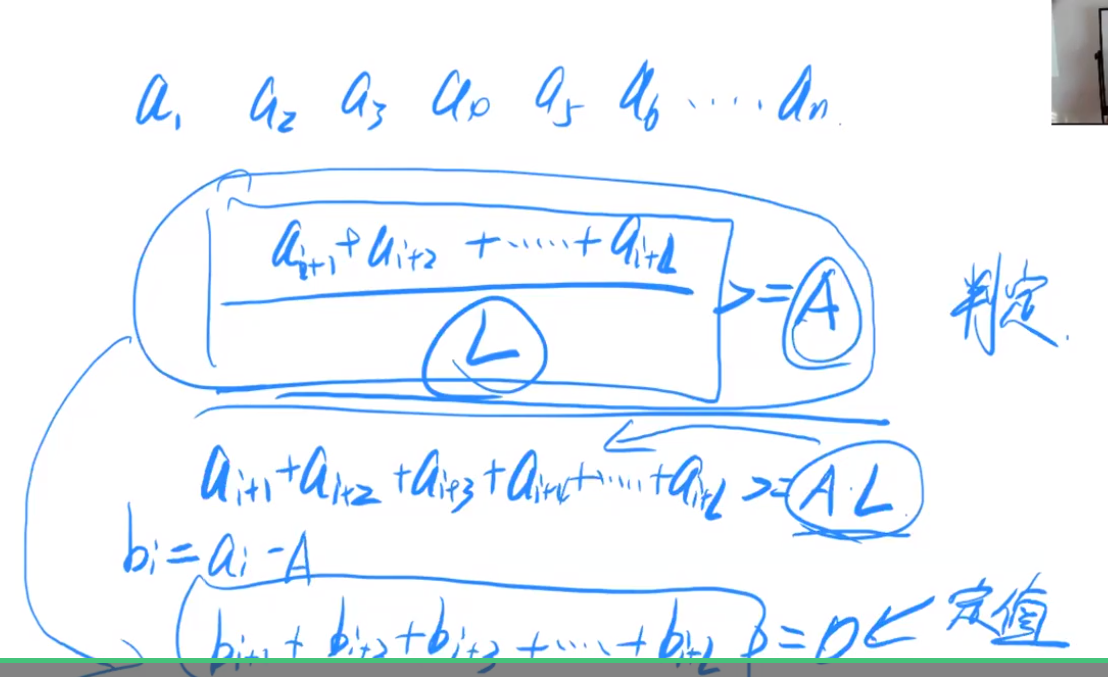 a₁ a₂ a₃ a₄ a₅ a₆ ..... aₙ
aᵢ₊₁+aᵢ₊₂ +......+ aᵢ₊L
L
>= A 判定.
aᵢ₊₁+aᵢ₊₂+aᵢ₊₃+aᵢ₊₄+...+aᵢ₊L >= A·L
bᵢ=aᵢ-A
bᵢ₊₁+bᵢ₊₂+bᵢ₊₃+....+bᵢ₊L >=0 定值